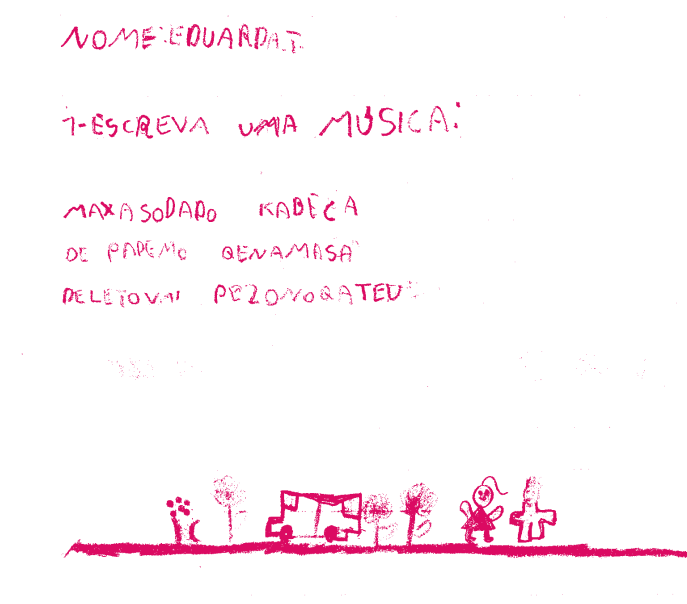 NOME: EDUARDA.T.
1-ESCREVA UMA MÚSICA:
MAXASODADO KABĒÇA
DE PAPEMO QENAMASA
DELETOVAI PEZONOQATEU